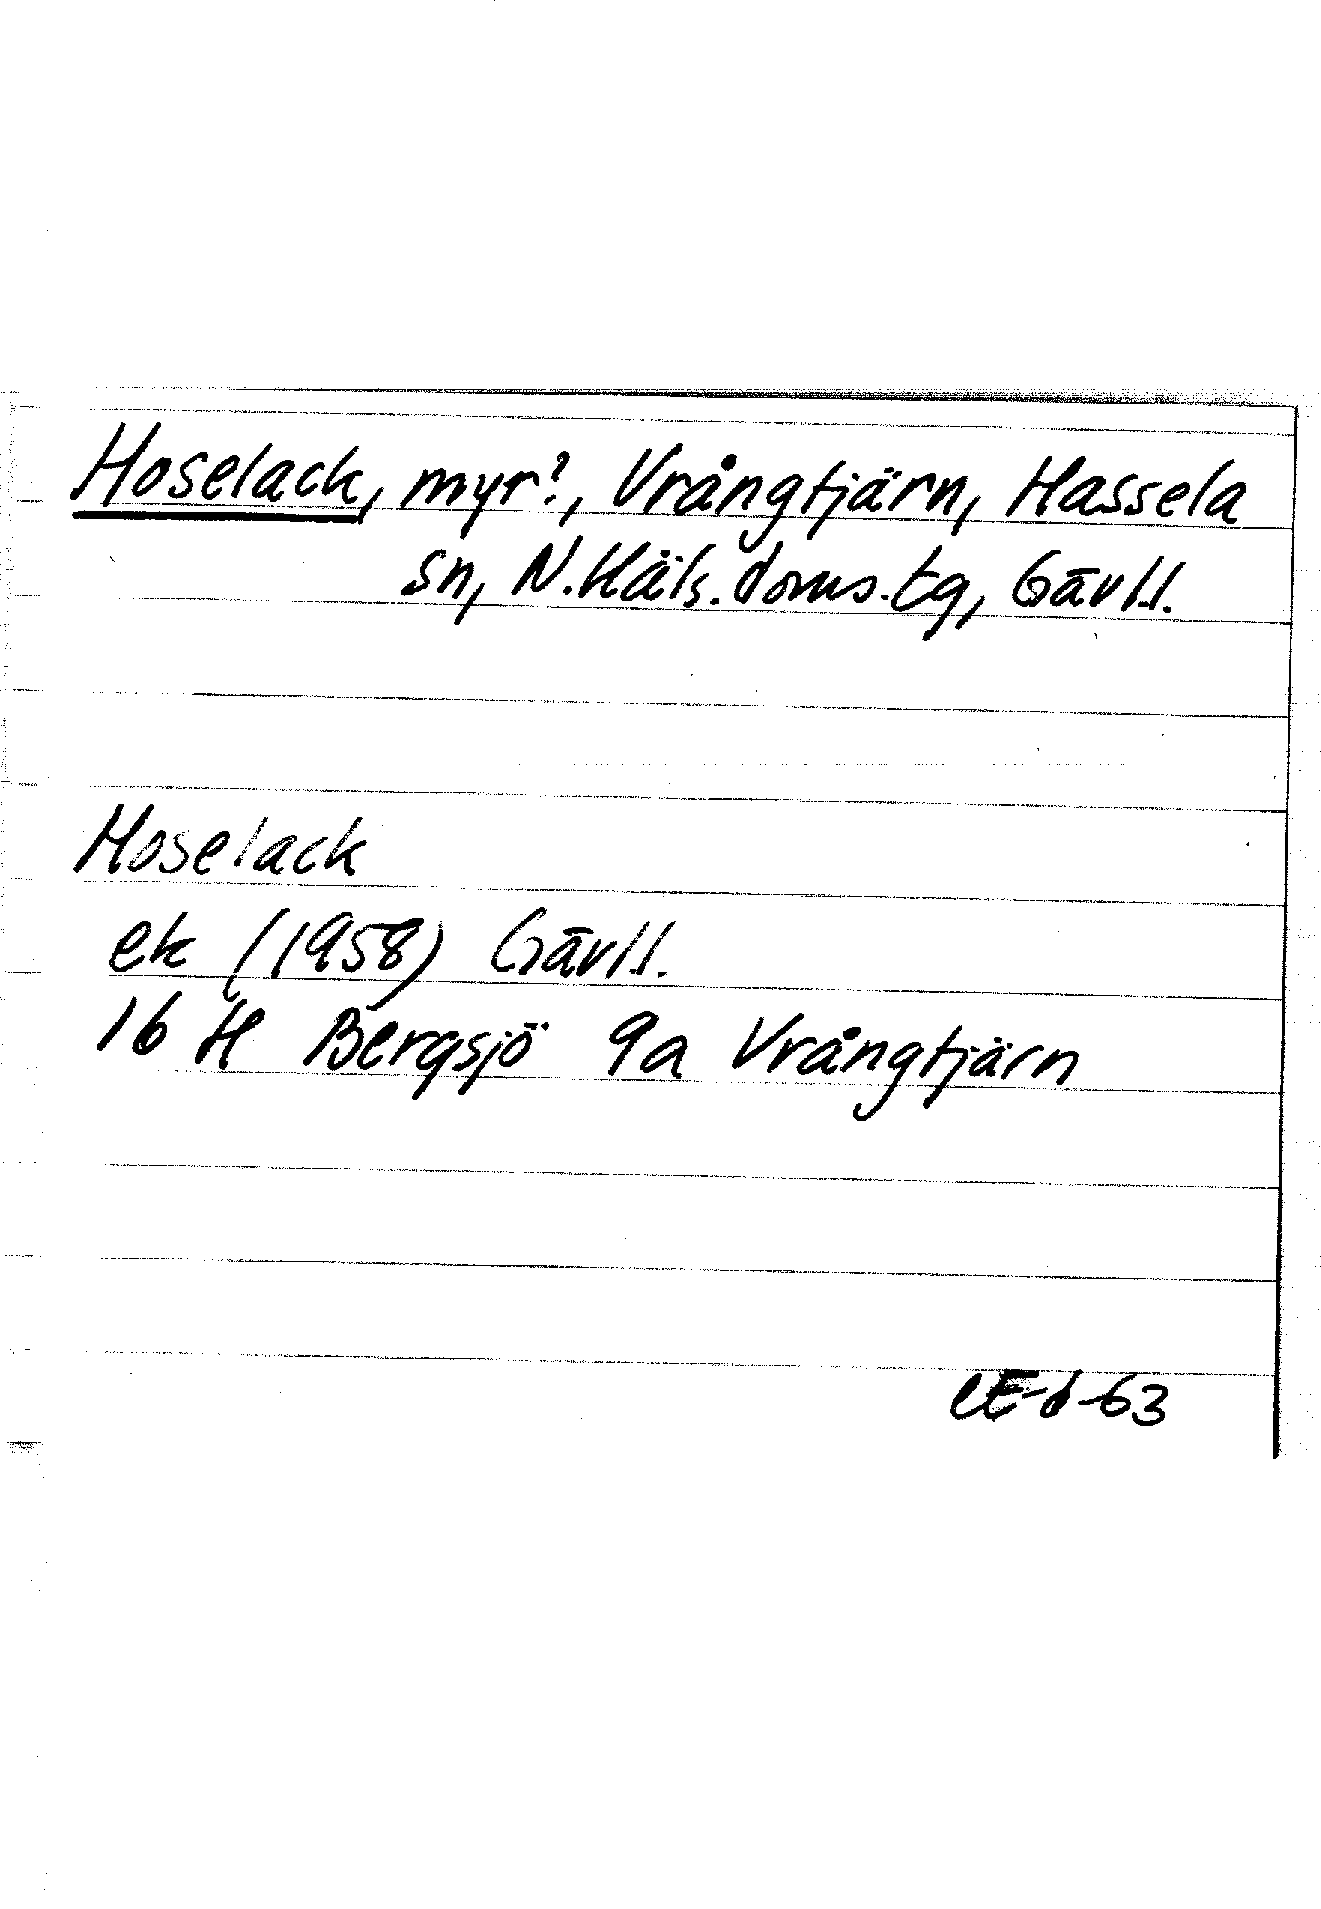 Hoselack, myr?, Vrångtjärn, Hassela
sn, N. Häls. doms. tg, Gävl.l.
Hoselack
ek (1958) Gävl.l.
16 H Bergsjö 9a Vrångtjärn